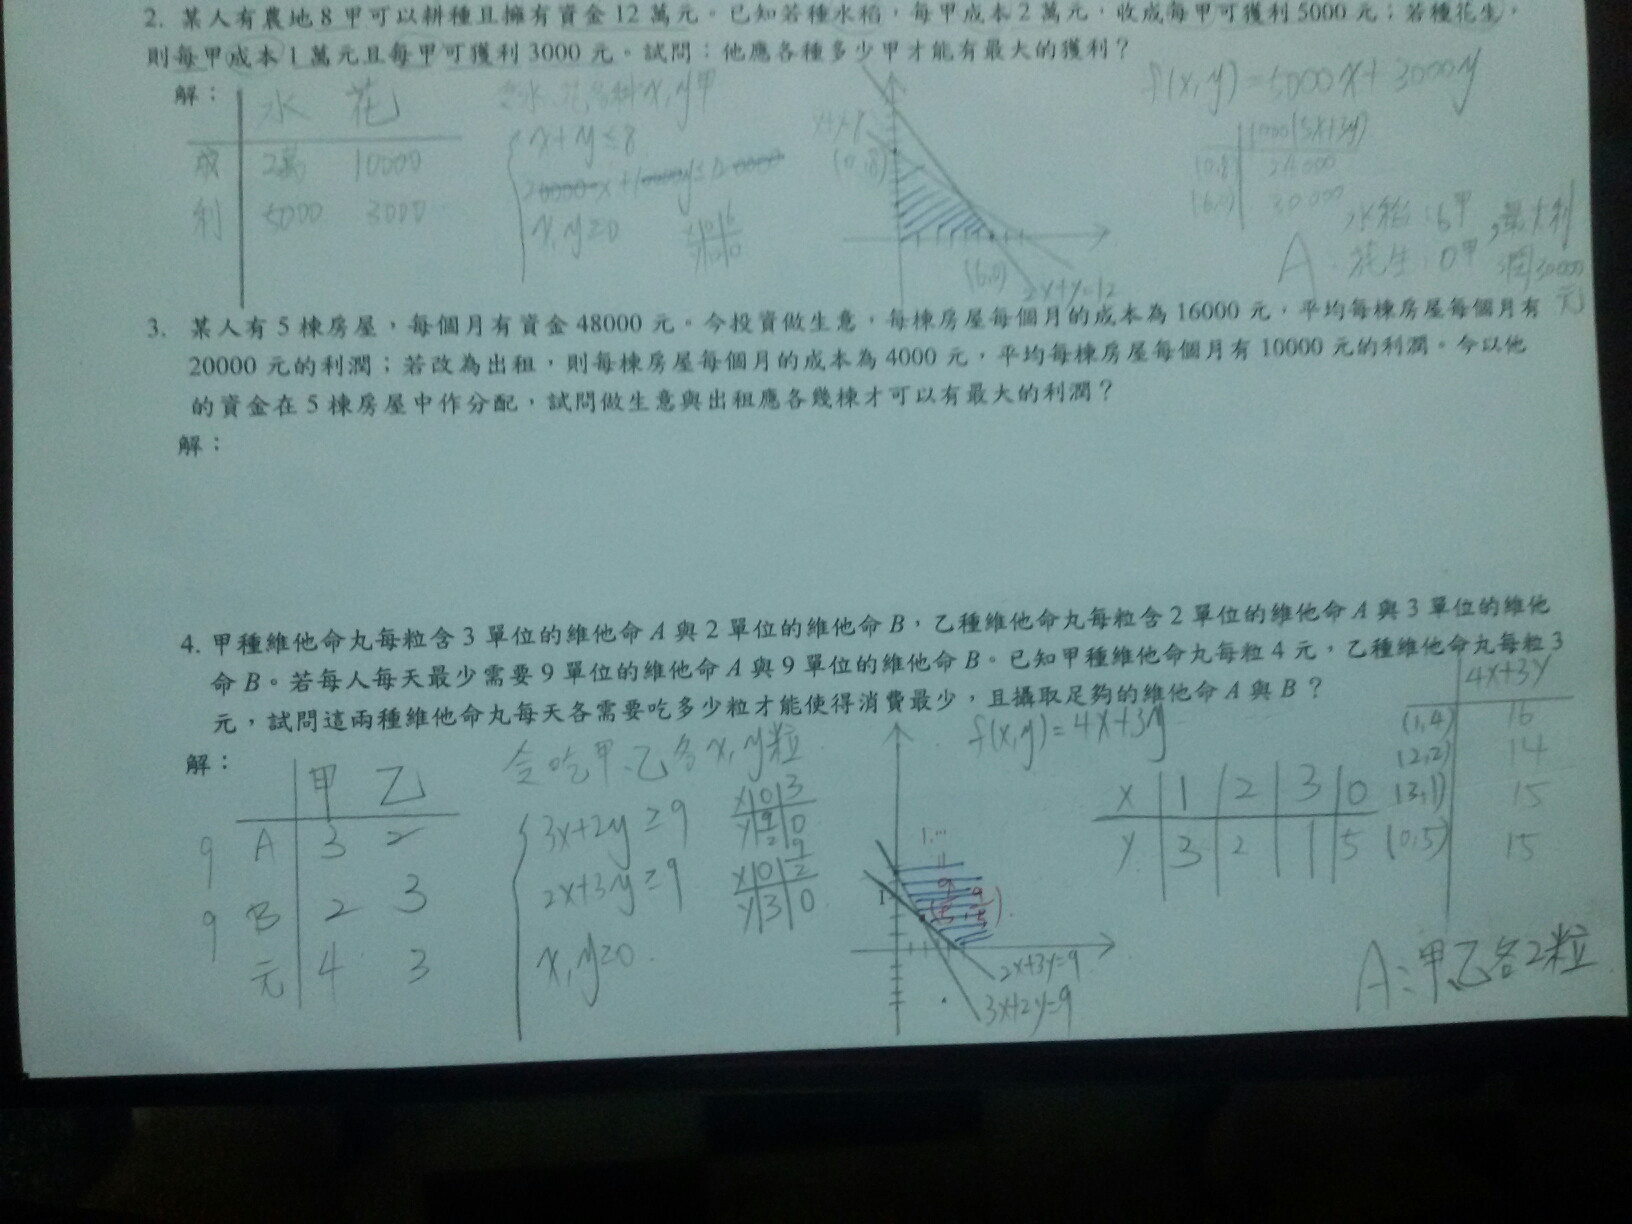 2. 某人有農地8甲可以耕種且擁有資金12萬元。已知若種水稻，每甲成本2萬元，收成每甲可獲利5000元；若種花生，
則每甲成本1萬元且每甲可獲利3000元。試問：他應各種多少甲才能有最大的獲利？
解：
水 花
成 2萬 10000
利 5000 3000
令水、花各種x, y甲
x+y≤8
x, y≥0
(0,8)
(6,0)
2x+y=12
f(x,y)=5000x+3000y
1000(5x+3y)
(0,8) 24000
(6,0) 30000
A: 水稻:6甲
花生:0甲
,最大利
潤30000
元
3. 某人有5棟房屋，每個月有資金48000元。今投資做生意，每棟房屋每個月的成本為16000元，平均每棟房屋每個月有
20000元的利潤；若改為出租，則每棟房屋每個月的成本為4000元，平均每棟房屋每個月有10000元的利潤。今以他
的資金在5棟房屋中作分配，試問做生意與出租應各幾棟才可以有最大的利潤？
解：
4. 甲種維他命丸每粒含3單位的維他命A與2單位的維他命B，乙種維他命丸每粒含2單位的維他命A與3單位的維他
命B。若每人每天最少需要9單位的維他命A與9單位的維他命B。已知甲種維他命丸每粒4元，乙種維他命丸每粒3
元，試問這兩種維他命丸每天各需要吃多少粒才能使得消費最少，且攝取足夠的維他命A與B？
解：
甲 乙
9 A 3 2
9 B 2 3
元 4 3
令吃甲、乙各x, y粒
3x+2y≥9
2x+3y≥9
x, y≥0.
x 0 3
y 9/2 0
x 0 9/2
y 3 0
1
(9/5, 9/5)
2x+3y=9
3x+2y=9
f(x,y)=4x+3y
x 1 2 3 0
y 3 2 1 5
4x+3y
(1,4) 16
(2,2) 14
(3,1) 15
(0,5) 15
A:甲、乙各2粒